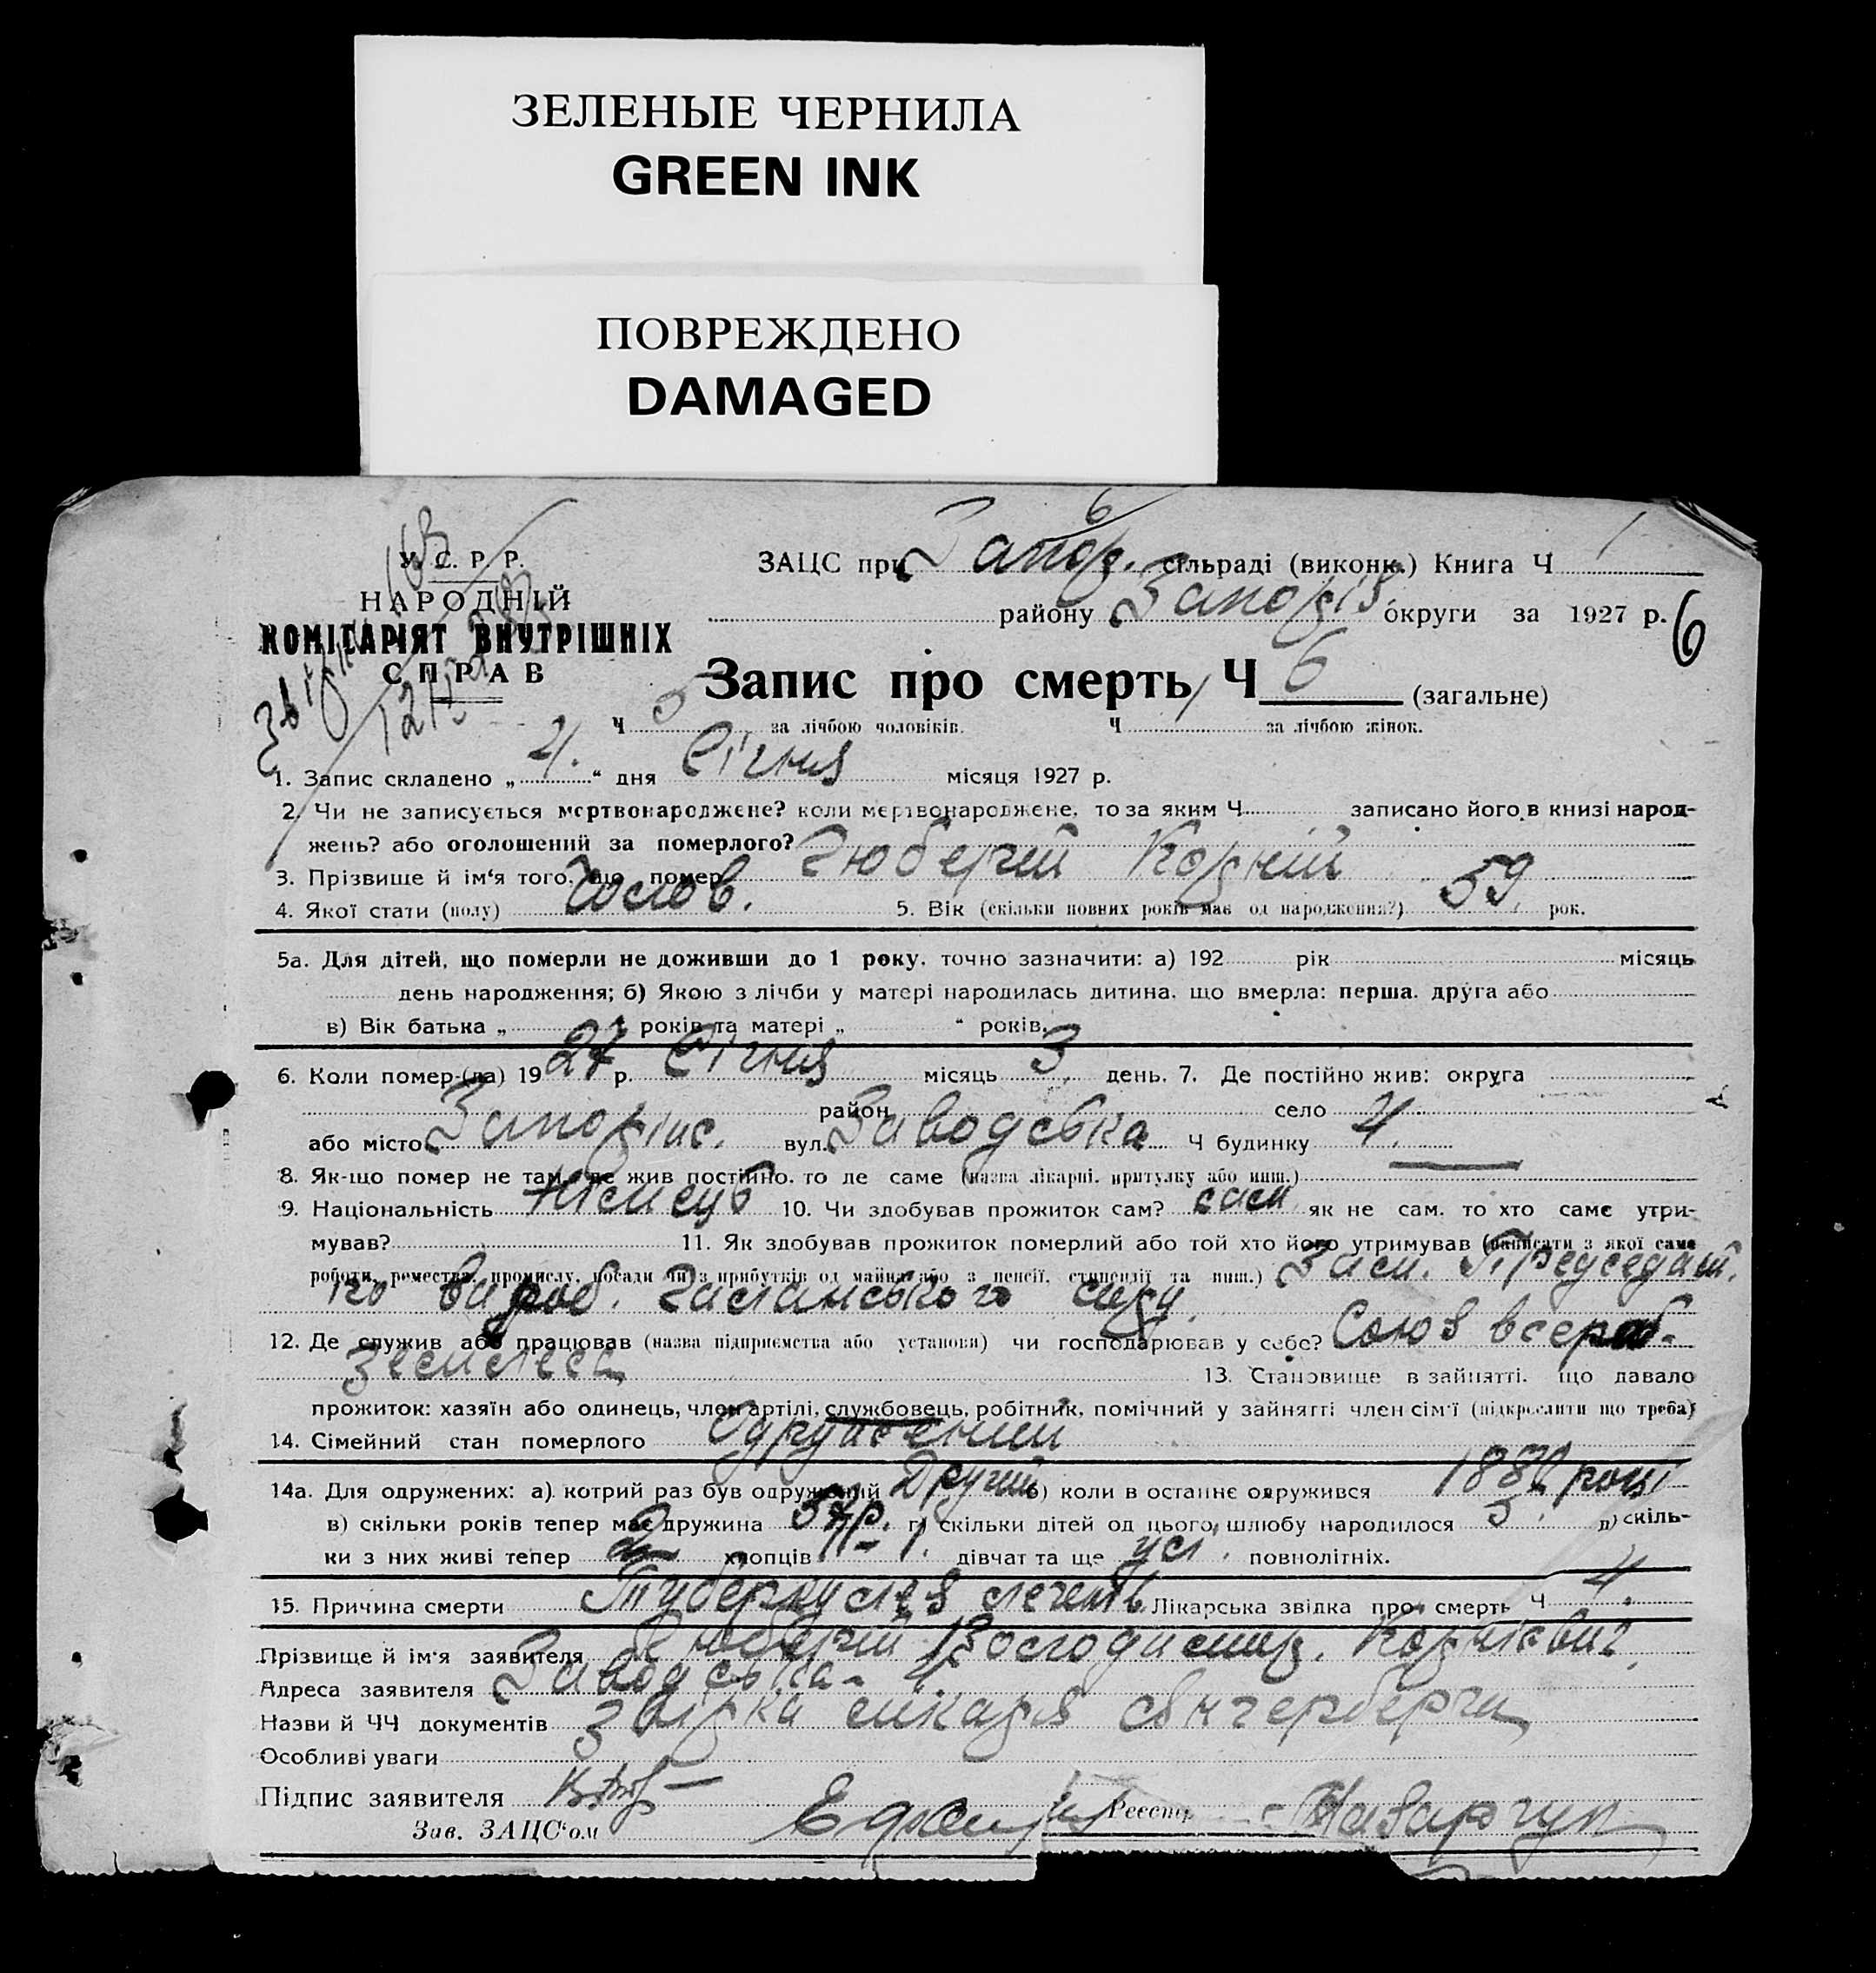 ЗЕЛЕНЫЕ ЧЕРНИЛА
GREEN INK
ПОВРЕЖДЕНО
DAMAGED
6
У. С. Р. Р.
НАРОДНІЙ
КОМІСАРІЯТ ВНУТРІШНІХ
СПРАВ
ЗАЦС при Запор. сільраді (виконк.) Книга Ч 1
району Запоріз. округи за 1927 р. 6
Запис про смерть Ч 6 (загальне)
Ч 5 за лічбою чоловіків. Ч за лічбою жінок.
1. Запис складено „ 4. “ дня Січня місяця 1927 р.
2. Чи не записується мертвонароджене? коли мертвонароджене, то за яким Ч записано його в книзі народ-
жень? або оголошений за померлого?
3. Прізвище й ім'я того, що помер Гюберт Корній
4. Якої стати (полу) Чолов. 5. Вік (скільки повних років має од народження?) 59 рок.
5а. Для дітей, що померли не доживши до 1 року, точно зазначити: а) 192 рік місяць
день народження; б) Якою з лічби у матері народилась дитина, що вмерла: перша, друга або
в) Вік батька „ “ років та матері „ “ років.
6. Коли помер-(ла) 1927 р. Січня місяць 3 день. 7. Де постійно жив: округа
район село
або місто Запоріжж. вул. Заводська Ч будинку 4.
8. Як-що помер не там, де жив постійно, то де саме (назва лікарні, притулку або инш.)
9. Національність Німець 10. Чи здобував прожиток сам? сам як не сам, то хто саме утри-
мував? 11. Як здобував прожиток померлий або той хто його утримував (написати з якої саме
роботи, ремества, промислу, посади чи з прибутків од майна або з пенсії, стипендії та инш.) Засм. Председат.
12. Де служив або працював (назва підприємства або установи) чи господарював у себе? Союз всероб-
землеса 13. Становище в зайнятті, що давало
прожиток: хазяїн або одинець, член артілі, службовець, робітник, помічний у зайнятті член сім'ї (підкреслити що треба)
14. Сімейний стан померлого Одружений
14а. Для одружених: а) котрий раз був одружений Другий б) коли в останнє одружився році
в) скільки років тепер має дружина р. г) скільки дітей од цього шлюбу народилося 3. д) скіль-
ки з них живі тепер 2 хлопців 1. дівчат та ще усі. повнолітніх.
15. Причина смерти Туберкульоз легень Лікарська звідка про смерть Ч 4.
Прізвище й ім'я заявителя Корнієвич
Адреса заявителя Заводська - 4
Назви й ЧЧ документів Звідка лікаря
Особливі уваги
Підпис заявителя
Зав. ЗАЦС'ом Реєстр.